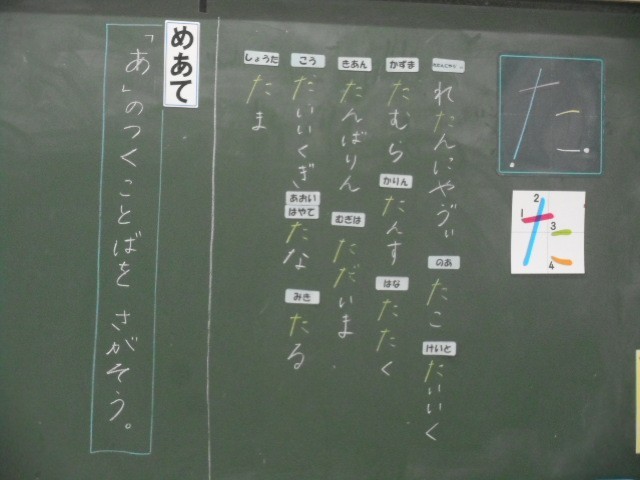 た
1
2
3
4
のあ
たこ
けいと
たいいく
かずま
たむら
かりん
たんす
はな
たたく
きあん
たんばりん
むぎは
ただいま
こう
たいいくぎ
あおい
はやて
たな
みき
たる
しょうた
たま
めあて
「あ」のつくことばを さがそう。